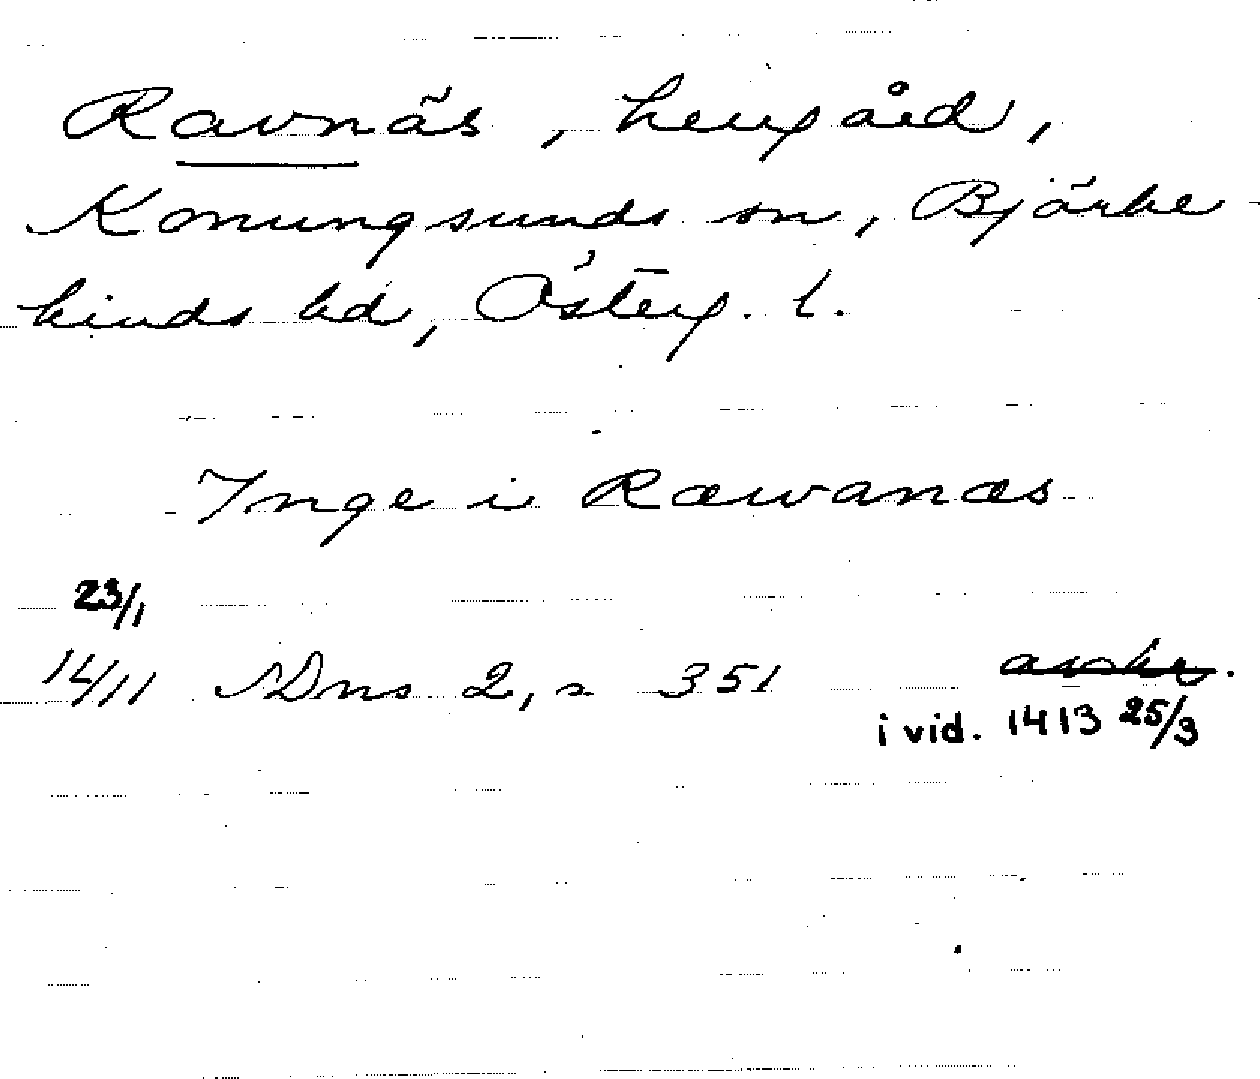 Ravnäs, herrgård,
Konungsunds sn, Björke-
kinds hd, Österg. l.
Inge i Ræwanæs
23/1
14/11 SDns 2, s 351
i vid. 1413 25/3